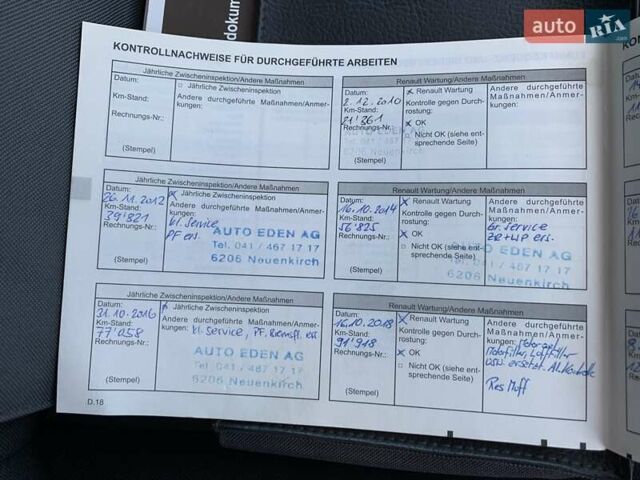 dokum
auto RIA.com
KONTROLLNACHWEISE FÜR DURCHGEFÜHRTE ARBEITEN
Jährliche Zwischeninspektion/Andere Maßnahmen
Datum:
Km-Stand:
Rechnungs-Nr.:
(Stempel)
□ Jährliche Zwischeninspektion
Andere durchgeführte Maßnahmen/Anmerkungen:
Renault Wartung/Andere Maßnahmen
Datum:
2.12.2010
Km-Stand:
21'361
Rechnungs-Nr.:
(Stempel)
x Renault Wartung
Kontrolle gegen Durchrostung:
x OK
□ Nicht OK (siehe entsprechende Seite)
Andere durchgeführte Maßnahmen/Anmerkungen:
AUTO EDEN AG
Tel. 041 / 467
6206 Neuenkirch
Jährliche Zwischeninspektion/Andere Maßnahmen
Datum:
26.11.2012
Km-Stand:
39'821
Rechnungs-Nr.:
(Stempel)
x Jährliche Zwischeninspektion
Andere durchgeführte Maßnahmen/Anmerkungen:
kl. Service
PF ers.
AUTO EDEN AG
Tel. 041 / 467 17 17
6206 Neuenkirch
Renault Wartung/Andere Maßnahmen
Datum:
16.10.2014
Km-Stand:
56'825
Rechnungs-Nr.:
(Stempel)
x Renault Wartung
Kontrolle gegen Durchrostung:
x OK
□ Nicht OK (siehe entsprechende Seite)
Andere durchgeführte Maßnahmen/Anmerkungen:
gr. Service
ZR+WP ers.
EDEN AG
Tel. 041 / 467 17 17
6206 Neuenkirch
Jährliche Zwischeninspektion/Andere Maßnahmen
Datum:
31.10.2016
Km-Stand:
77'058
Rechnungs-Nr.:
(Stempel)
x Jährliche Zwischeninspektion
Andere durchgeführte Maßnahmen/Anmerkungen: kl. Service, PF, Bremsfl. ers
AUTO EDEN AG
Tel. 041 / 467 17 17
6206 Neuenkirch
Renault Wartung/Andere Maßnahmen
Datum:
16.10.2018
Km-Stand:
91'918
Rechnungs-Nr.:
(Stempel)
x Renault Wartung
Kontrolle gegen Durchrostung:
x OK
□ Nicht OK (siehe entsprechende Seite)
Andere durchgeführte Maßnahmen/Anmerkungen:
Motoroel
Motorfilter, Luftfilter
ersetzt.
D.18